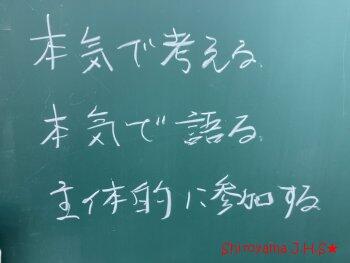 本気で考える
本気で語る
主体的に参加する
Shiroyama J.H.S★